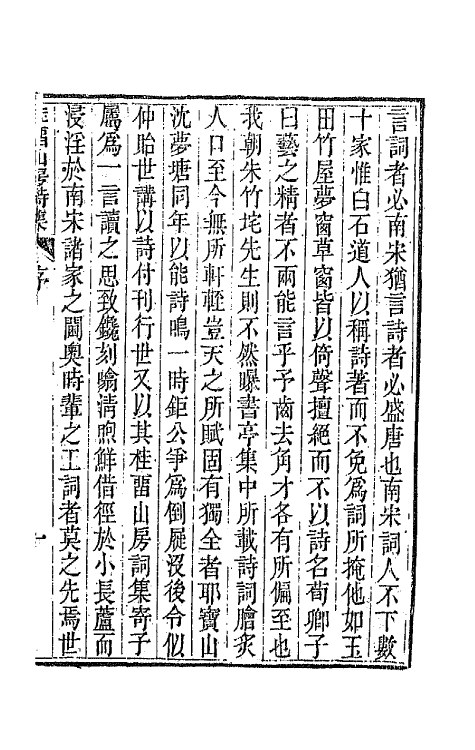 言詞者必南宋猶言詩者必盛唐也南宋詞人不下數
十家惟白石道人以稱詩著而不免爲詞所掩他如玉
田竹屋夢窗草窗皆以倚聲擅絕而不以詩名荀卿子
曰藝之精者不兩能言乎予齒去角才各有所偏至也
我朝朱竹垞先生則不然曝書亭集中所載詩詞膾炙
人口至今無所軒輊豈天之所賦固有獨全者耶寶山
沈夢塘同年以能詩鳴一時鉅公爭爲倒屣沒後令似
仲貽世講以詩付刊行世又以其桂畱山房詞集寄予
屬爲一言讀之思致鑱刻喻淸煦鮮借徑於小長蘆而
浸淫於南宋諸家之閫奧時輩之工詞者莫之先焉世
畱山房詞集 序 一